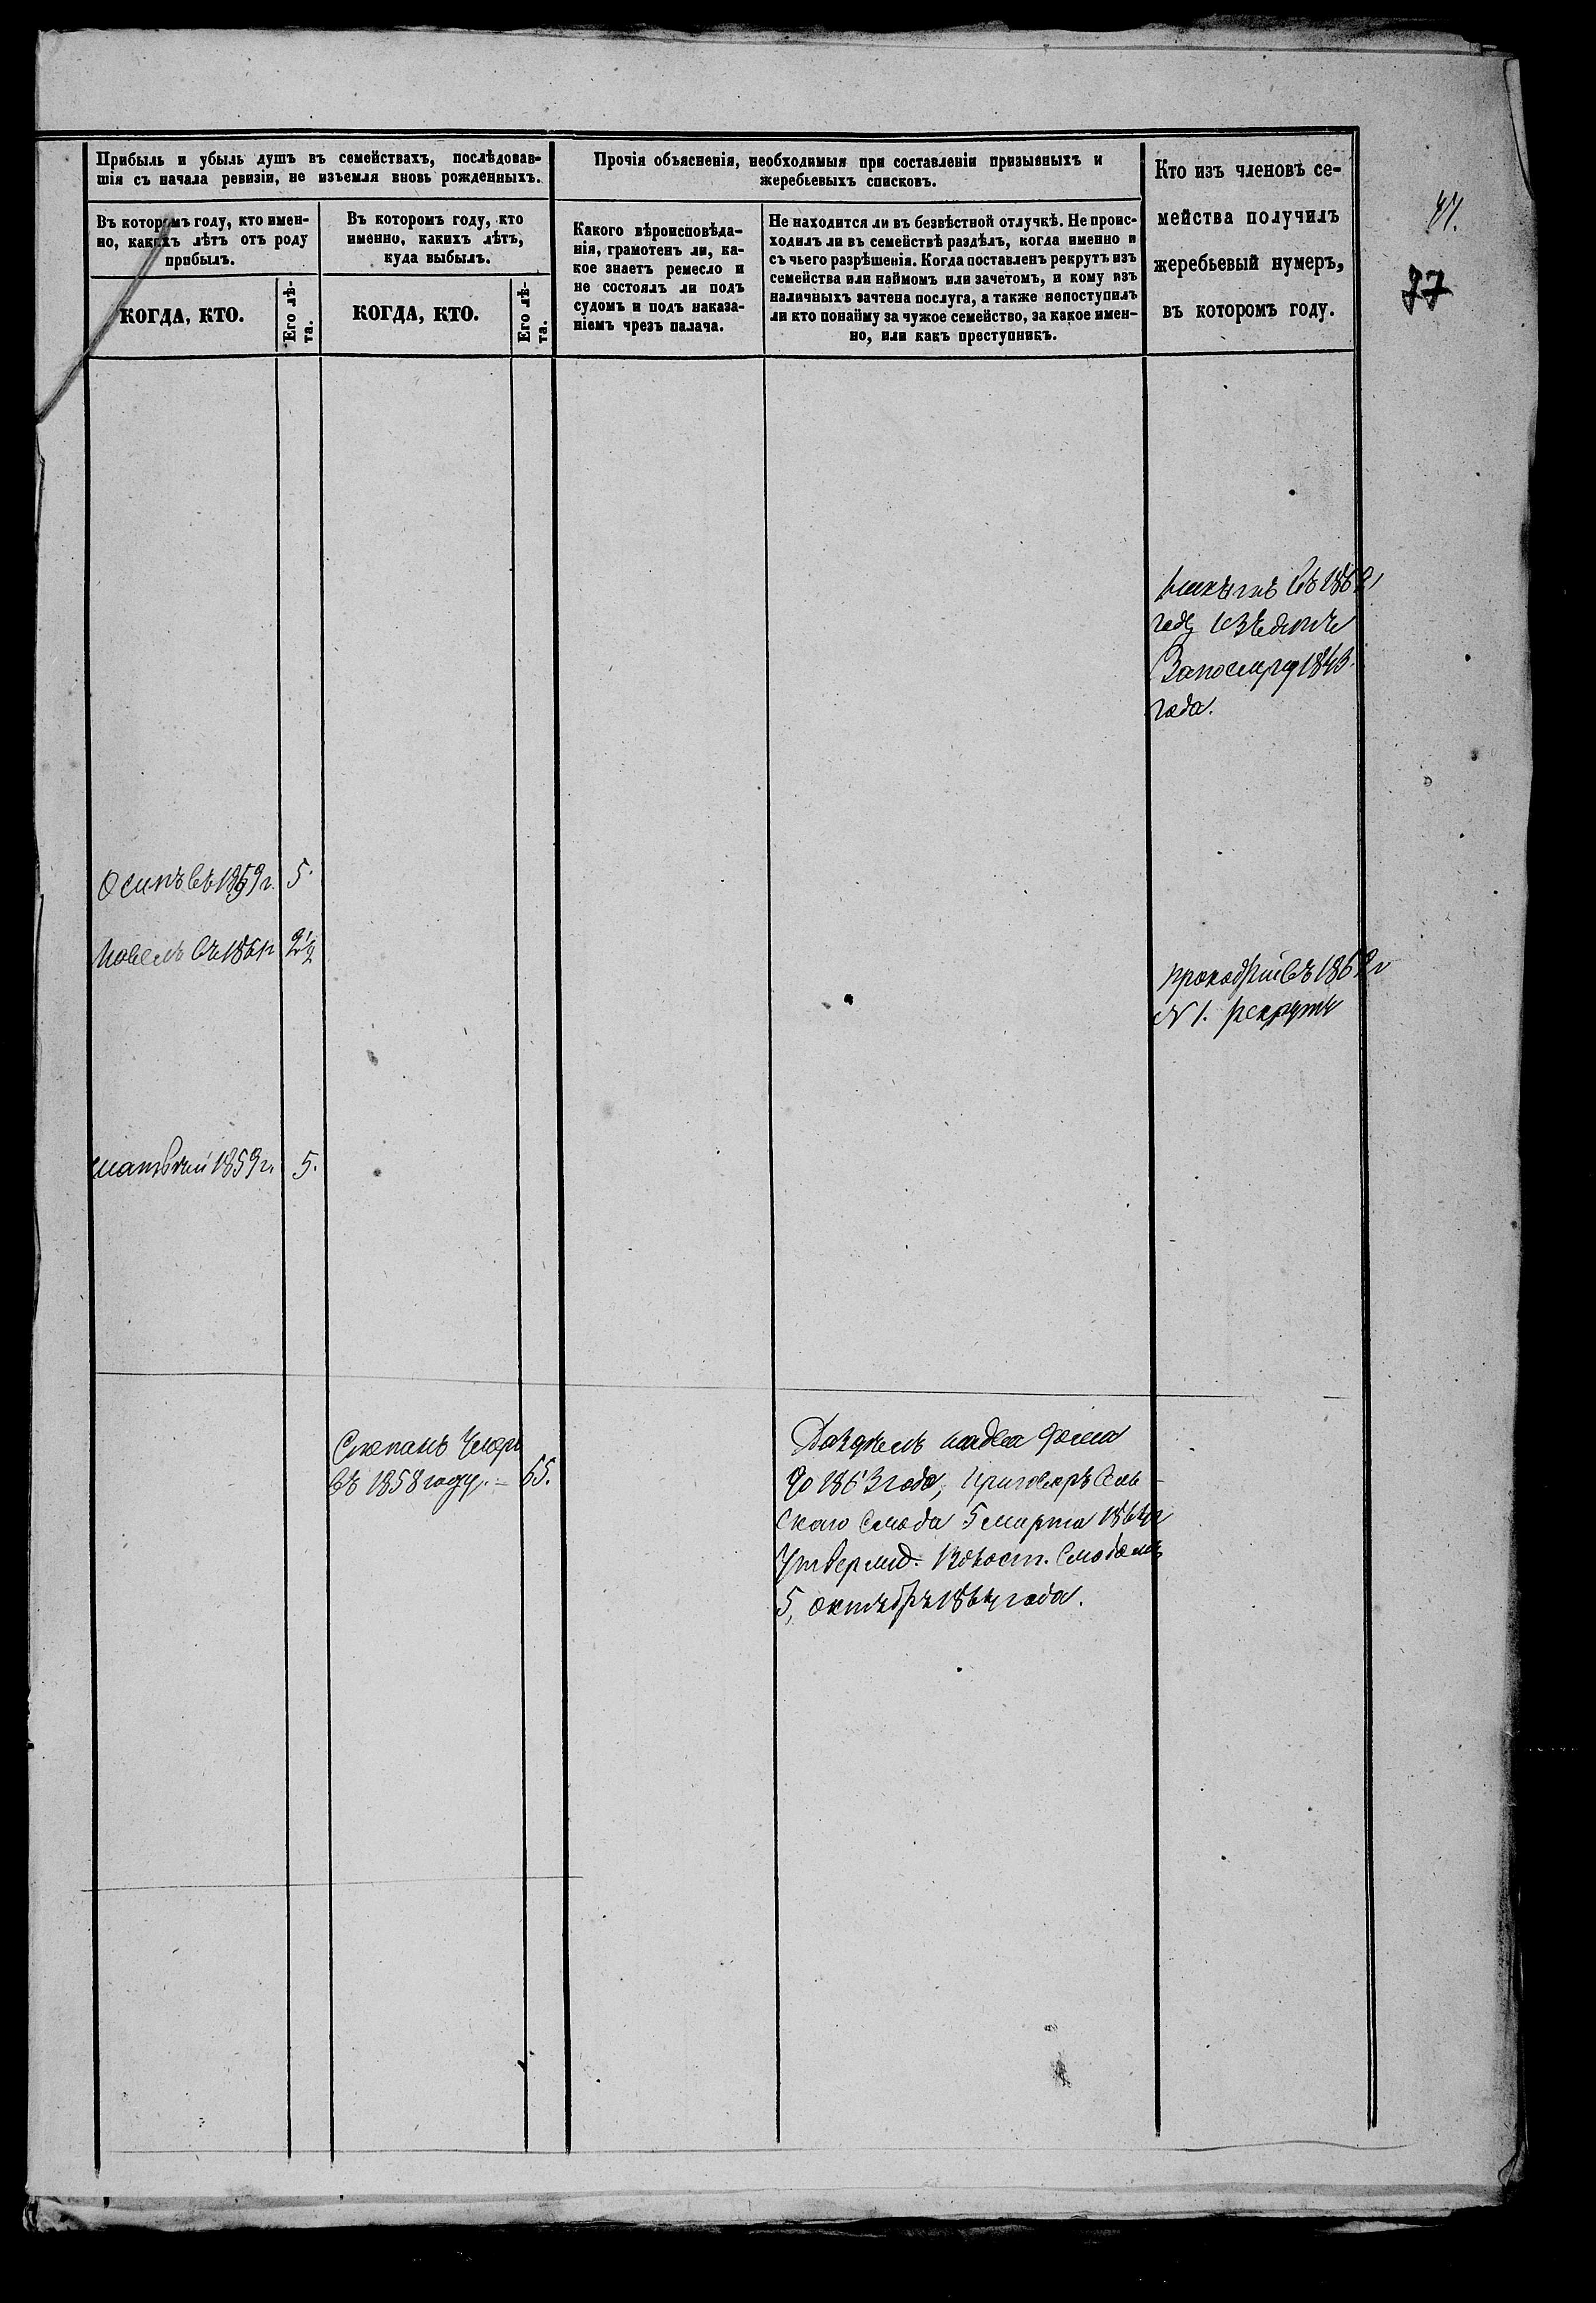 Прибыль и убыль душъ въ семействахъ, послѣдовав-
шія съ начала ревизіи, не изъемля вновь рожденныхъ.
Въ которомъ году, кто имен-
но, какихъ лѣтъ отъ роду
прибылъ.
КОГДА, КТО.
Его лѣ-
та.
Въ которомъ году, кто
именно, какихъ лѣтъ,
куда выбылъ.
КОГДА, КТО.
Его лѣ-
та.
Прочія объясненія, необходимыя при составленіи призывныхъ и
жеребьевыхъ списковъ.
Какого вѣроисповѣда-
нія, грамотенъ ли, ка-
кое знаетъ ремесло и
не состоялъ ли подъ
судомъ и подъ наказа-
ніемъ чрезъ палача.
Не находится ли въ безвѣстной отлучкѣ. Не проис-
ходилъ ли въ семействѣ раздѣлъ, когда именно и
съ чьего разрѣшенія. Когда поставленъ рекрутъ изъ
семейства или наймомъ или зачетомъ, и кому изъ
наличныхъ зачтена послуга, а также непоступилъ
ли кто понайму за чужое семейство, за какое имен-
но, или какъ преступникъ.
Кто изъ членовъ се-
мейства получилъ
жеребьевый нумеръ,
въ которомъ году.
37
въ 1862
году
1843
года.
Осипъ въ 1859 г. 5.
Павелъ въ 1861 г 2 1/2
въ 1862 г
N 1. рекрутъ
Матвѣй 1859 г. 5.
Степанъ Умеръ
въ 1858 году. 65.
Раздѣлъ
до 1863 года, Приговоръ Сель-
скаго Схода 5 марта 1864 г
Утвержд. Волост. Сходомъ
5, октября 1864 года.